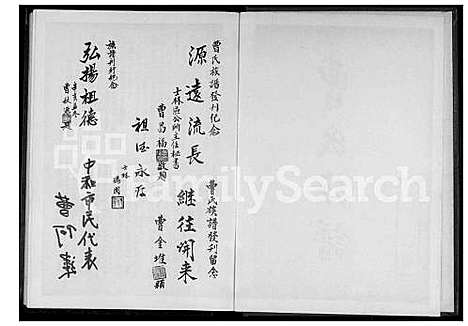 曹氏族譜發刊紀念
源遠流長
士林區公所主任秘書
曹昌福敬題
祖德永存
士林
曹氏族譜發刊留念
繼往開来
曹金堆題
族譜刊行紀念
弘揚祖德
中和市民代表
FamilySearch